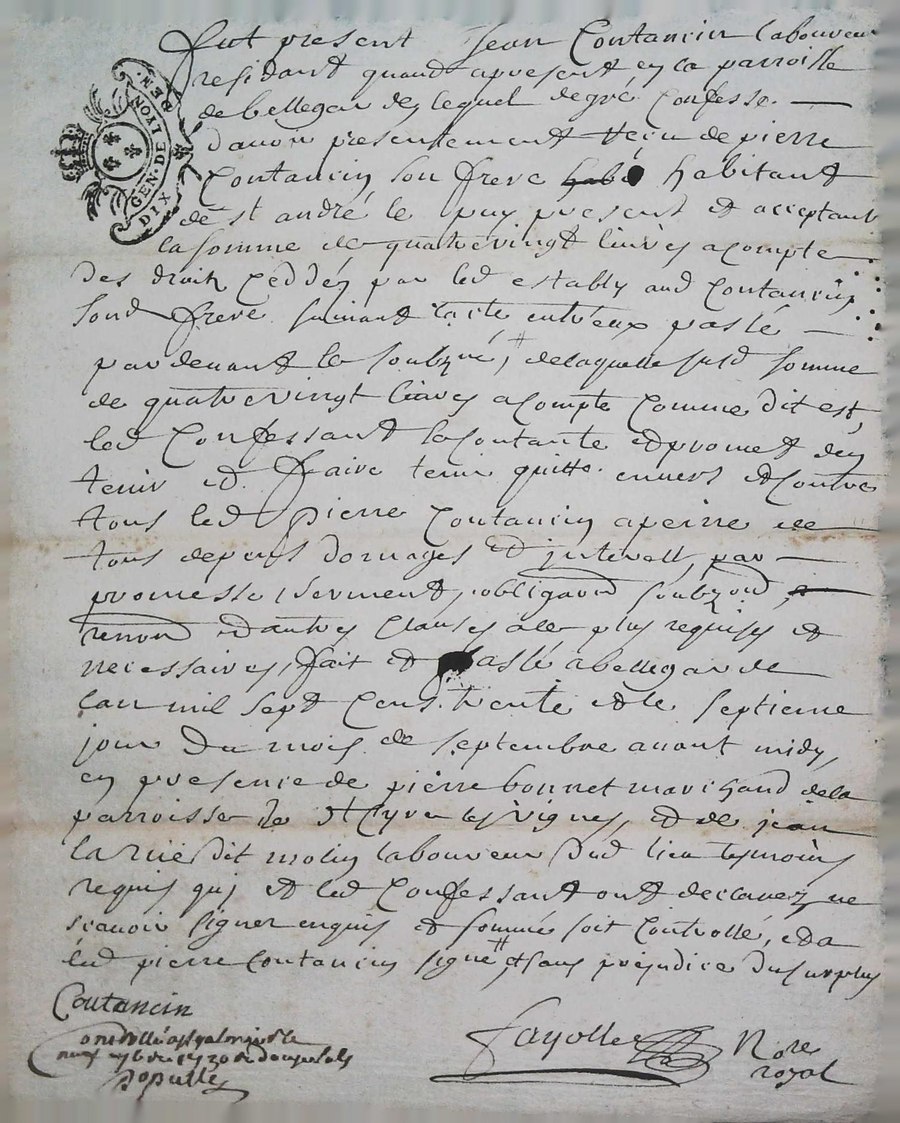 GEN. DE LYON
DIX DEN.
fut present Jean Coutancin laboureur
residant quand apresent en la parroisse
de bellegarde, lequel de gré Confesse
davoir presentement reçu de pierre
Coutancin son frere habitant
de st andré le puy present et acceptant
la somme de quatrevingt livres acompte
des droits Ceddés par led establÿ aud Coutancin
sond frere suivant lacte entreux passé
pardevant le soubzné, # de laquelle susd somme
de quatrevingt livres acompte Comme dit est,
led Confessant sa Contante et promet den
tenir et faire tenir quitte envers et Contre
tous led pierre Coutancin apeine de
tous depens domages et jnterests, par
promesse, serment, obligaond soubzond
renond et autres Clauses a ce plus requises et
necessaires, fait et passé abellegarde
lan mil sept Cens trente et le septieme
jour du mois de septembre avant midy
en presence de pierre bonnet marchand de la
parroisse de st Cyre les vignes, et de jean
la rüe dit molin laboureur dud lieu tesmoins
requis quj et led Confessant ont declarez ne
sçavoir signer enquis et sommé soit Controllé, et a
led pierre Coutancin signé # et sans prejudice du surplus
Coutancin
fayolle Nore
royal